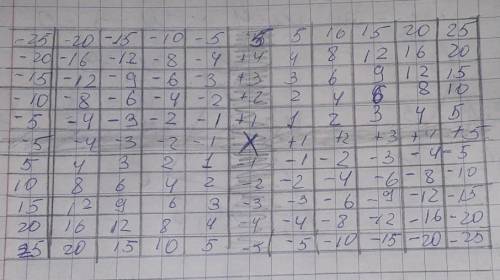 -25 -20 -15 -10 -5 +5 5 10 15 20 25
-20 -16 -12 -8 -4 +4 4 8 12 16 20
-15 -12 -9 -6 -3 +3 3 6 9 12 15
-10 -8 -6 -4 -2 +2 2 4 6 8 10
-5 -4 -3 -2 -1 +1 1 2 3 4 5
-5 -4 -3 -2 -1 X +1 +2 +3 +4 +5
5 4 3 2 1 -1 -1 -2 -3 -4 -5
10 8 6 4 2 -2 -2 -4 -6 -8 -10
15 12 9 6 3 -3 -3 -6 -9 -12 -15
20 16 12 8 4 -4 -4 -8 -12 -16 -20
25 20 15 10 5 -5 -5 -10 -15 -20 -25